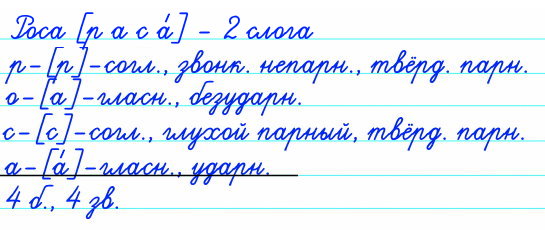 Роса [р а с а́] – 2 слога
р – [р] – согл., звонк. непарн., твёрд. парн.
о – [а] – гласн., безударн.
с – [с] – согл., глухой парный, твёрд. парн.
а – [а́] – гласн., ударн.
4 б., 4 зв.